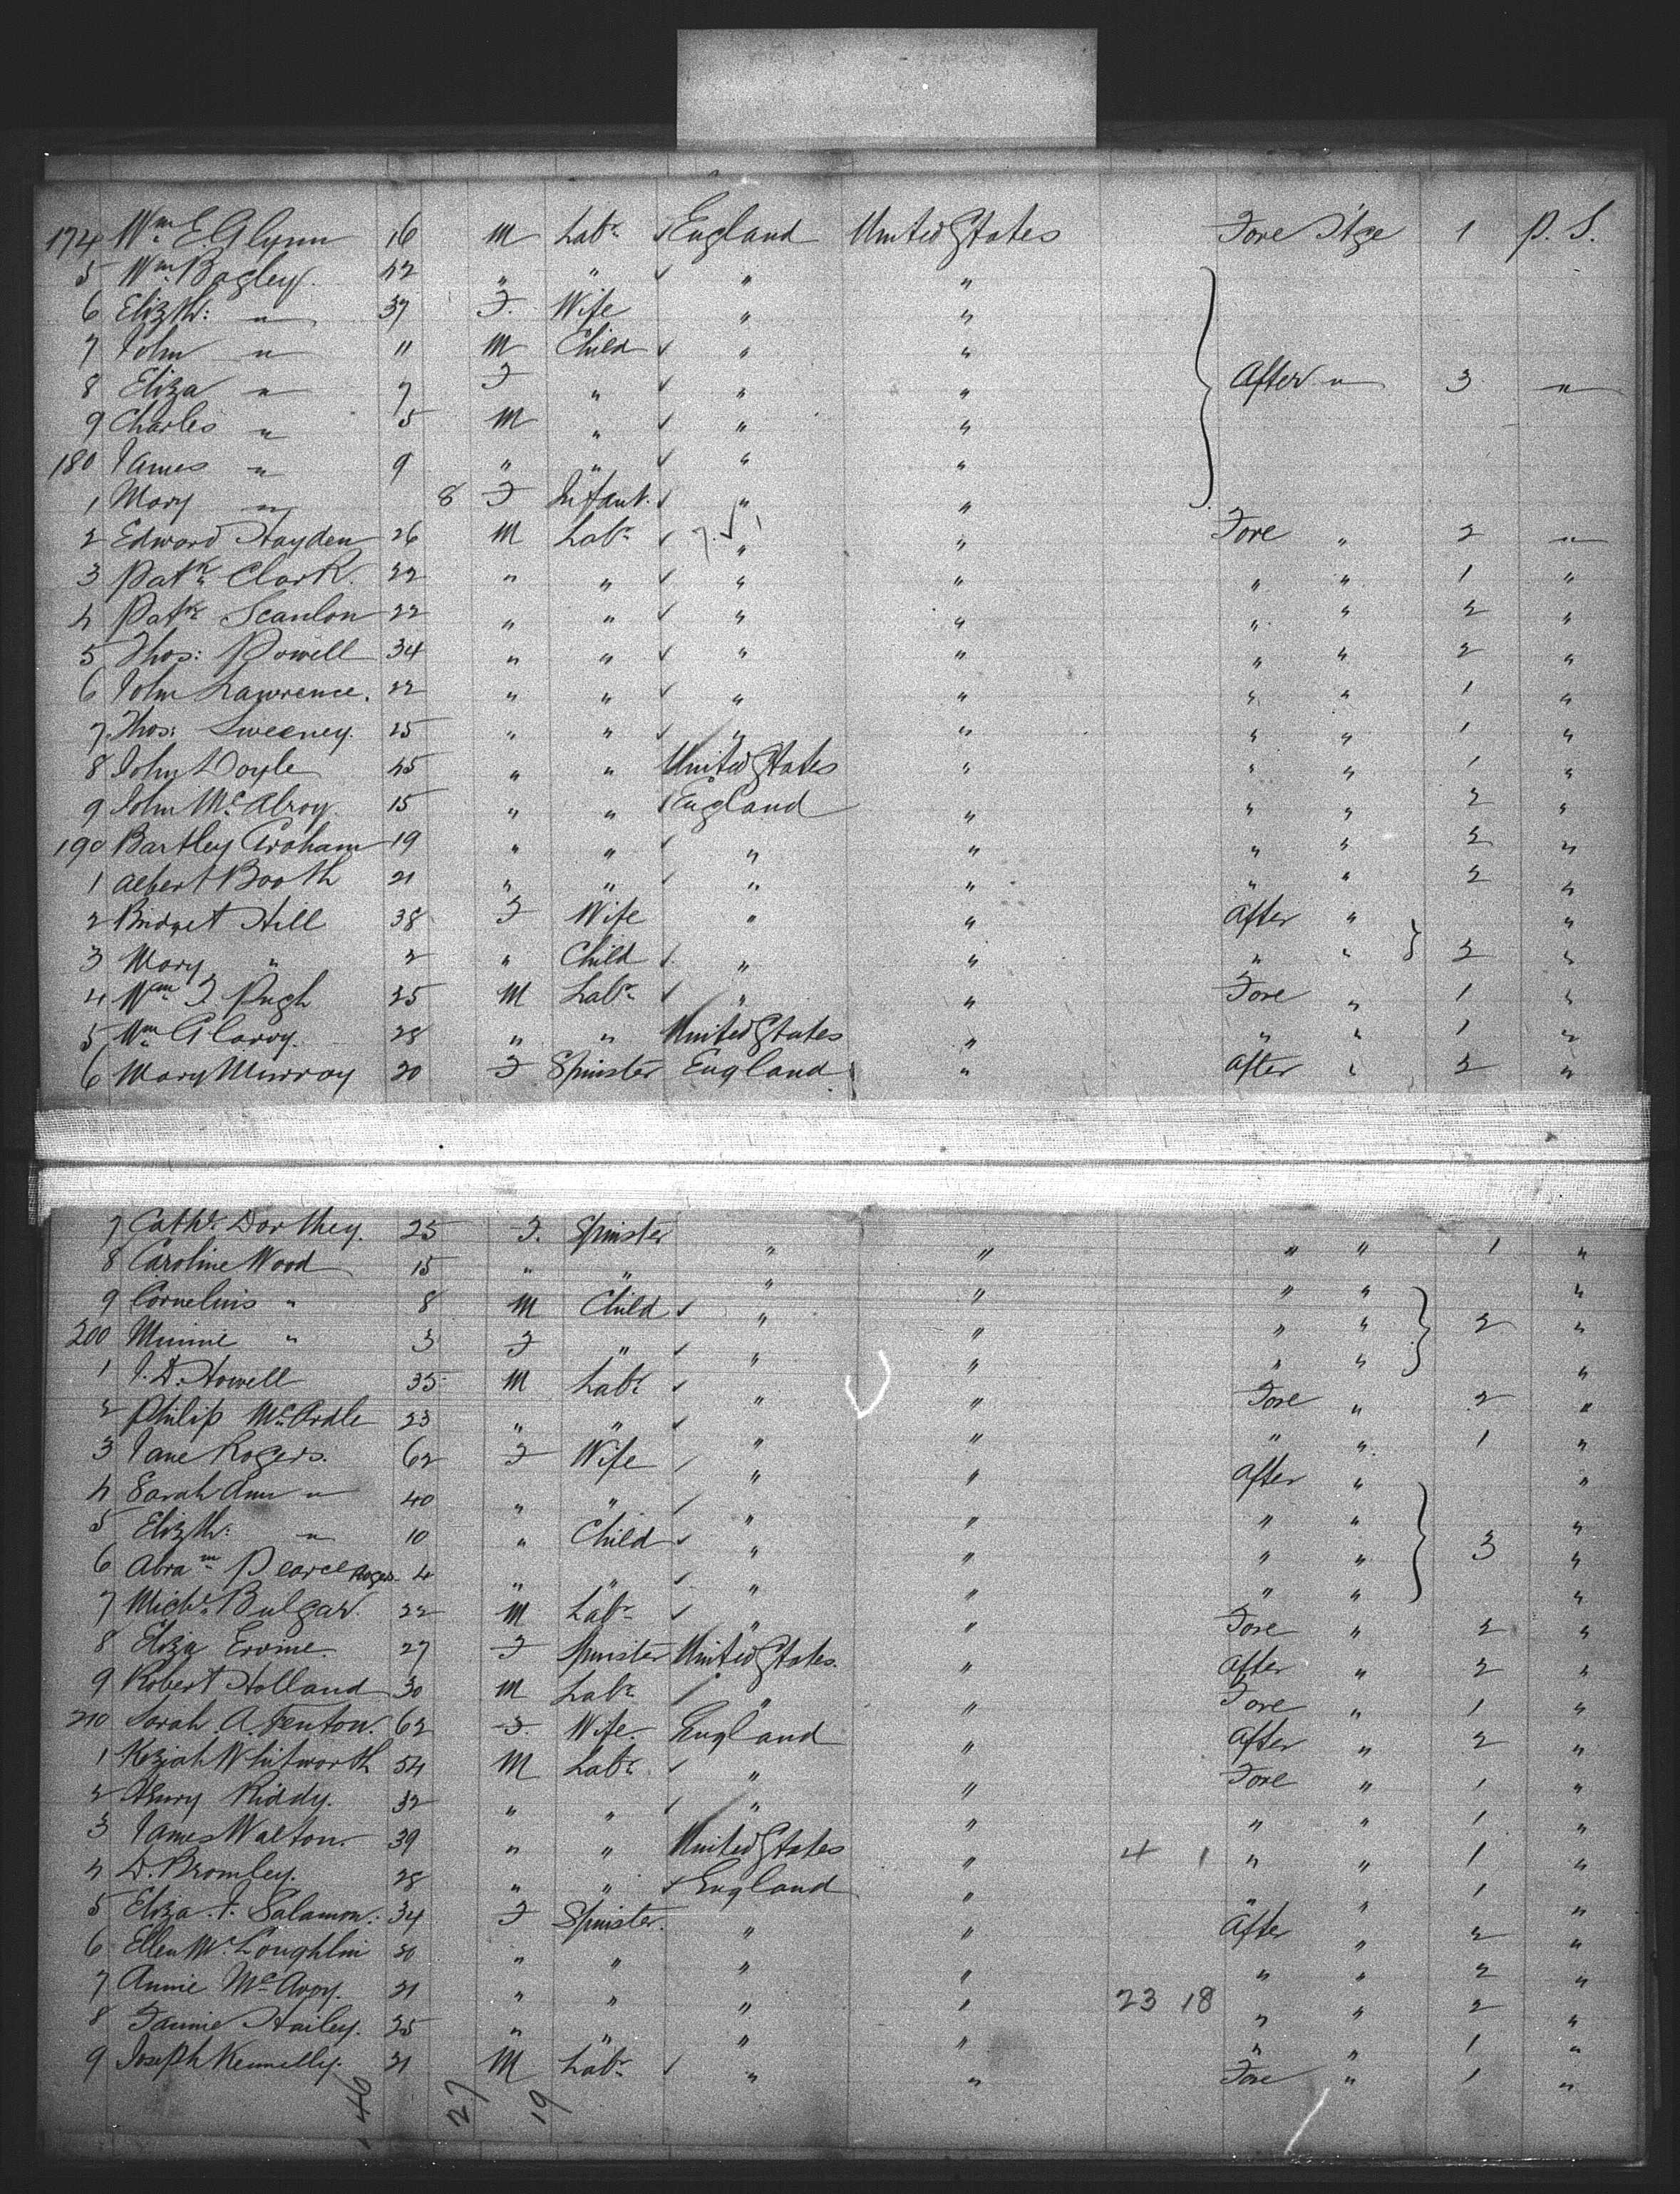 174 Wm E. Glynn 16 M Labr ✓ England United States Fore Stge 1 P. S.
5 Wm Bagley. 42 " " ✓ " "
6 Elizth: " 37 F. Wife " "
7 John " 11 M Child ✓ " "
8 Eliza " 7 F " ✓ " " After " 3 "
9 Charles " 5 M " ✓ " "
180 James " 9 " " ✓ " "
1 Mary " 8 F Infant. ✓ " "
2 Edward Hayden 26 M Labr ✓ " " Fore " 2 "
3 Patk Clark. 22 " " ✓ " " " " 1 "
4 Patk Scanlon 22 " " ✓ " " " " 2 "
5 Thos: Powell 34 " " ✓ " " " " 2 "
6 John Lawrence. 22 " " ✓ " " " " 1 "
7 Thos: Sweeney. 25 " " ✓ " " " " 1 "
8 John Doyle 45 " " United States " " " 1 "
9 John McAlroy. 15 " " ✓ England " " " 2 "
190 Bartley Graham 19 " " ✓ " " " " 2 "
1 Albert Booth 21 " " ✓ " " " " 2 "
2 Bridget Hill 38 F Wife " " After " "
3 Mary " 2 " Child ✓ " " " " 2 "
4 Wm J Pugh 25 M Labr ✓ " " Fore " 1 "
5 Wm Glaroy. 28 " " United States " " " 1 "
6 Mary Murray 20 F Spinster England " After " 2 "
7 Cathe. Dorthey. 25 F. Spinster " " " " 1 "
8 Caroline Wood 15 " " " " " " "
9 Cornelius " 8 M Child ✓ " " " " 2 "
200 Minnie " 3 F " ✓ " " " " "
1 J. D. Howell 35 M Labr ✓ " " Fore " 2 "
2 Philip McArdle 23 " " ✓ " " " " 1 "
3 Jane Rogers. 62 F Wife " " After " "
4 Sarah Ann " 40 " " " " " " "
5 Elizth: " 10 " Child ✓ " " " " 3 "
6 Abram Pearce Rogers 4 " " ✓ " " " " "
7 Michl Bulgar. 22 M Labr ✓ " " Fore " 2 "
8 Eliza Ervine. 27 F Spinster United States. " After " 2 "
9 Robert Holland 30 M Labr " " Fore " 1 "
210 Sarah. A Fenton. 62 F. Wife. England " After " 2 "
1 Keziah Whitworth 54 M Labr ✓ " " Fore " 1 "
2 Henry Kiddy. 32 " " ✓ " " " " 1 "
3 James Walton. 39 " " United States " 4 1 " " 1 "
4 D. Bromley. 28 " " ✓ England " " " 1 "
5 Eliza. J. Salamon: 34 F Spinster. " " After " 2 "
6 Ellen McLoughlin 20 " " " " " " 2 "
7 Annie McAvoy. 21 " " " " 23 18 " " 2 "
8 Fannie Hailey. 25 " " " " " " 1 "
9 Joseph Kennelly. 21 M Labr ✓ " " Fore " 1 "
46 27 19